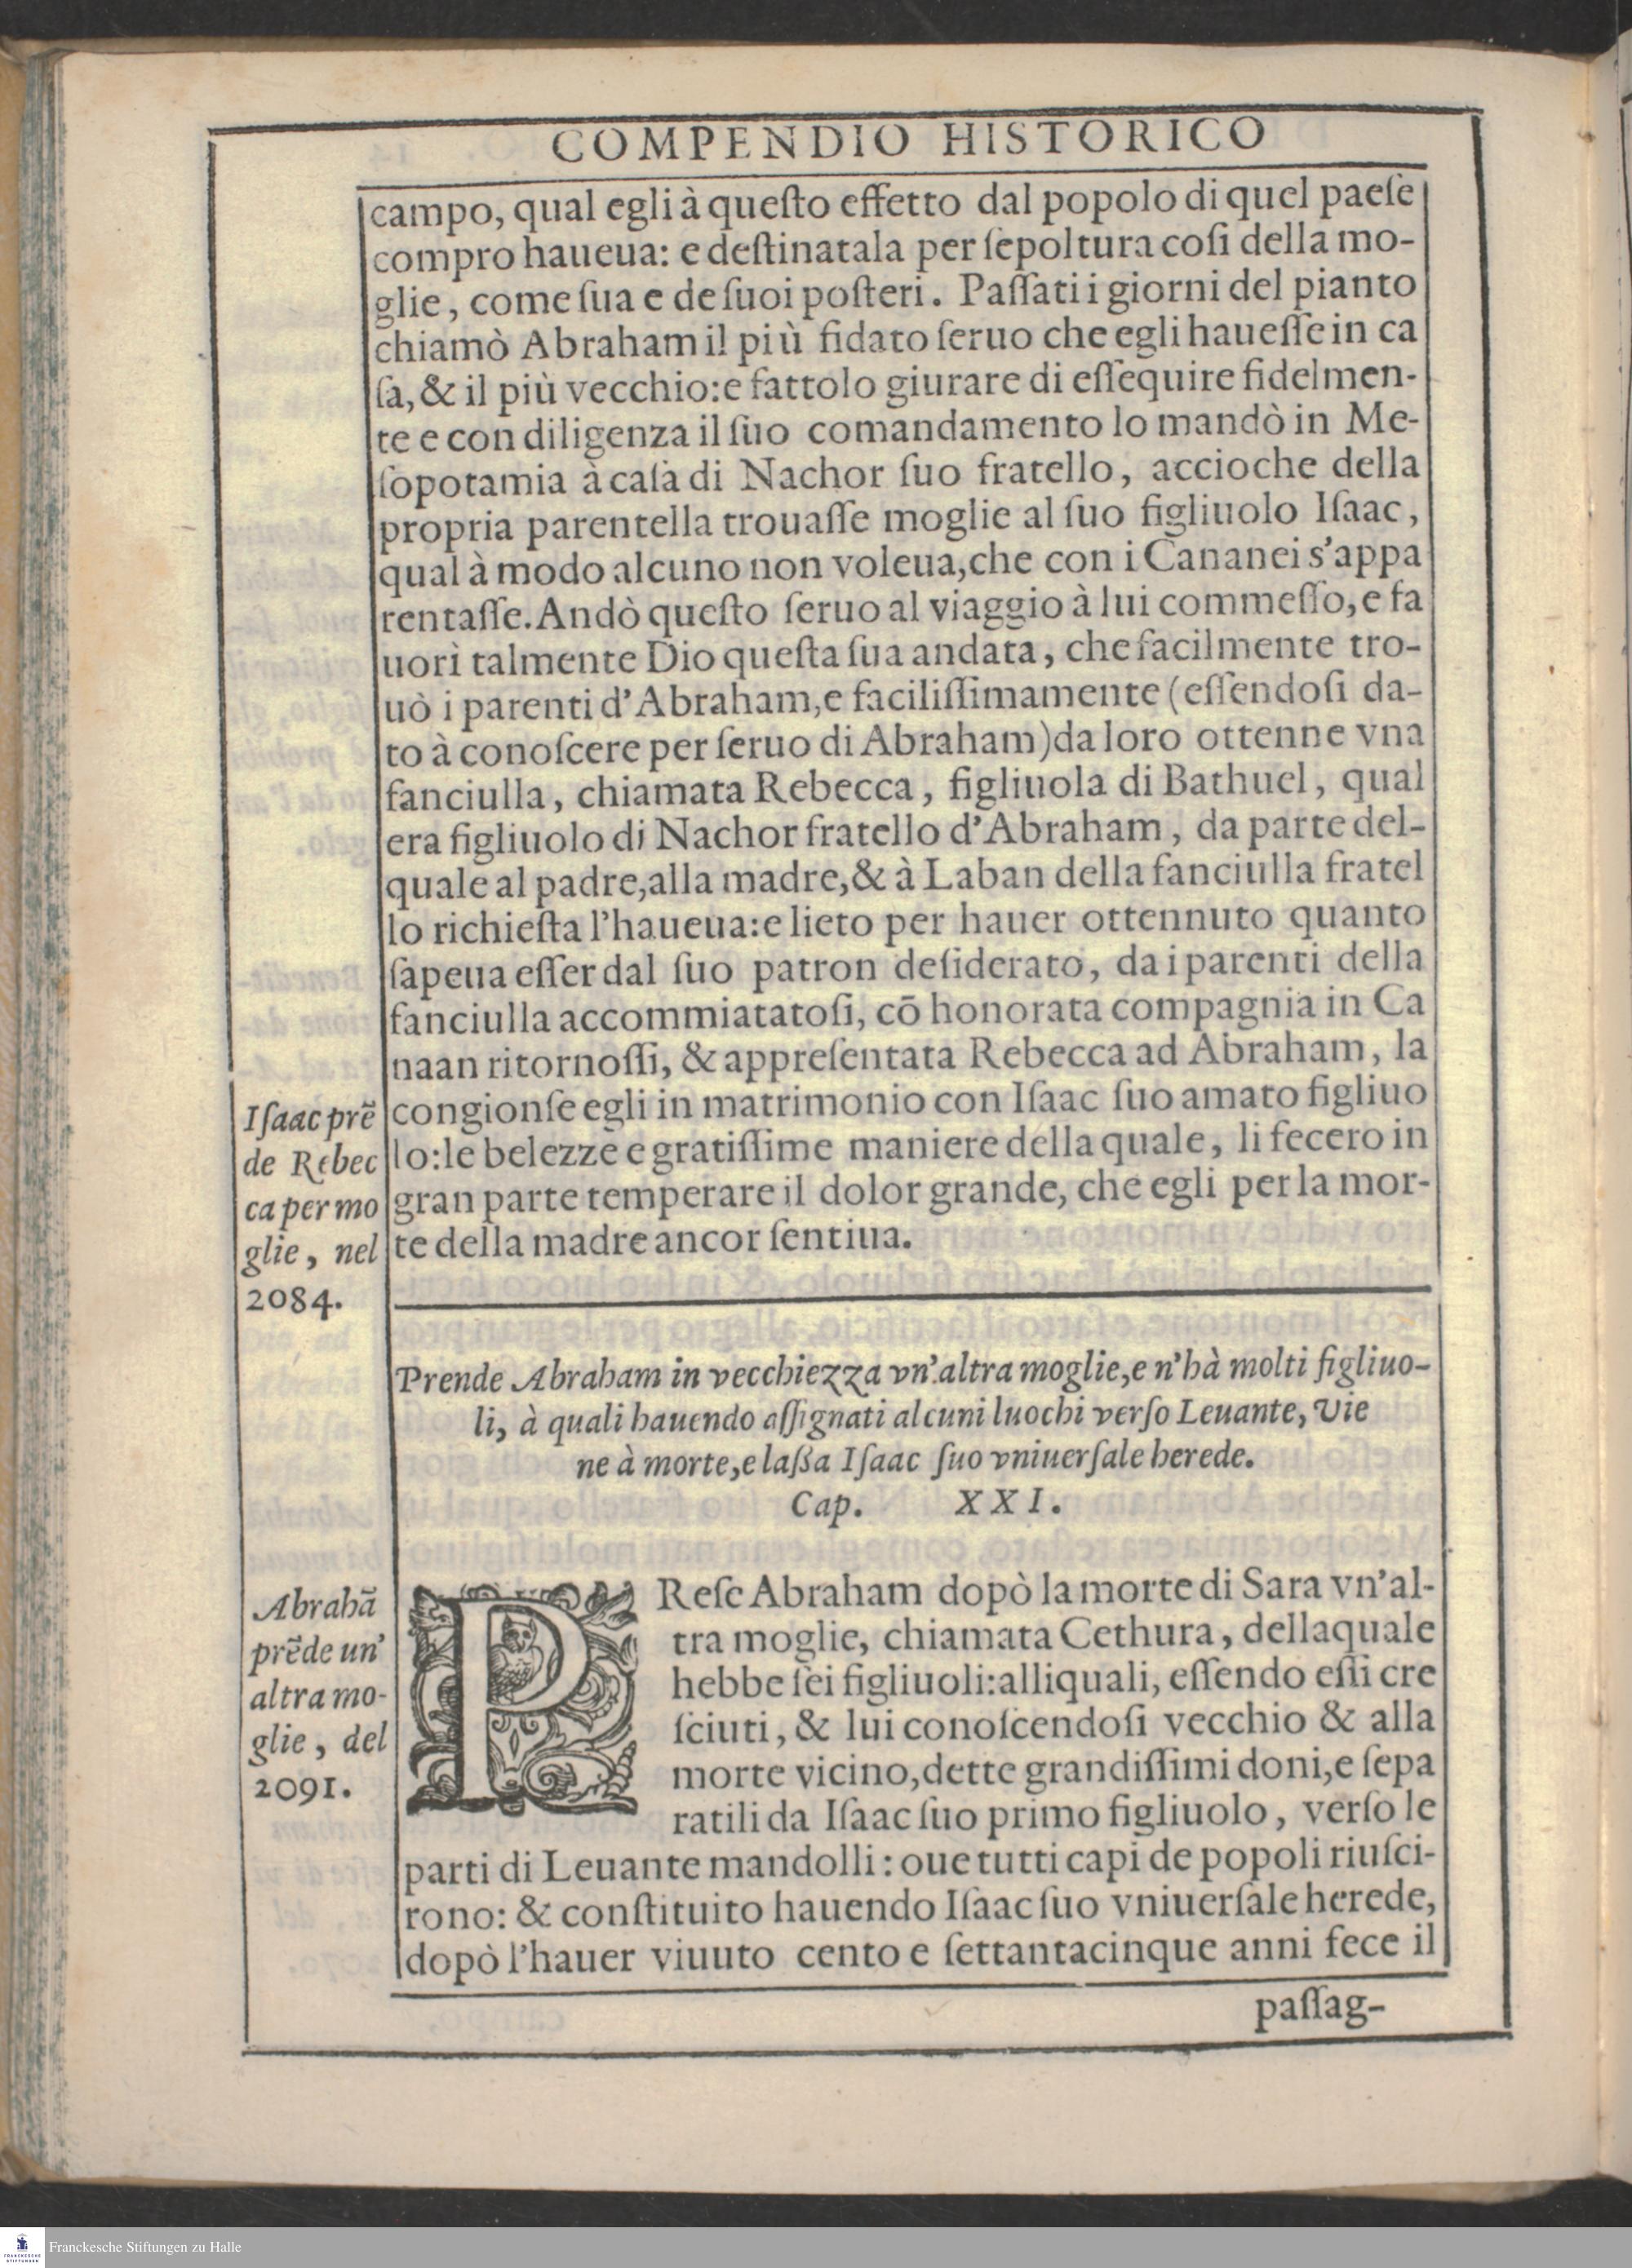 COMPENDIO HISTORICO
campo, qual egli à queſto effetto dal popolo di quel paeſe
compro haueua: e deſtinatala per ſepoltura coſi della mo-
glie, come ſua e de ſuoi poſteri. Paſſati i giorni del pianto
chiamò Abraham il più fidato ſeruo che egli haueſſe in ca
ſa, & il più vecchio: e fattolo giurare di eſſequire fidelmen-
te e con diligenza il ſuo comandamento lo mandò in Me-
ſopotamia à caſa di Nachor ſuo fratello, accioche della
propria parentella trouaſſe moglie al ſuo figliuolo Iſaac,
qual à modo alcuno non voleua, che con i Cananei s'appa
rentaſſe. Andò queſto ſeruo al viaggio à lui commeſſo, e fa
uorì talmente Dio queſta ſua andata, che facilmente tro-
uò i parenti d'Abraham, e faciliſſimamente (eſſendoſi da-
to à conoſcere per ſeruo di Abraham) da loro ottenne vna
fanciulla, chiamata Rebecca, figliuola di Bathuel, qual
era figliuolo di Nachor fratello d'Abraham, da parte del-
quale al padre, alla madre, & à Laban della fanciulla fratel
lo richieſta l'haueua: e lieto per hauer ottennuto quanto
ſapeua eſſer dal ſuo patron deſiderato, da i parenti della
fanciulla accommiatatoſi, cō honorata compagnia in Ca
naan ritornoſſi, & appreſentata Rebecca ad Abraham, la
congionſe egli in matrimonio con Iſaac ſuo amato figliuo
lo: le belezze e gratiſſime maniere della quale, li fecero in
gran parte temperare il dolor grande, che egli per la mor-
te della madre ancor ſentiua.
Iſaac prē
de Rebec
ca per mo
glie, nel
2084.
Prende Abraham in vecchiezza vn'altra moglie, e n'hà molti figliuo-
li, à quali hauendo aſſignati alcuni luochi verſo Leuante, Vie
ne à morte, e laſſa Iſaac ſuo vniuerſale herede.
Cap. XXI.
Abrahā
prēde un'
altra mo-
glie, del
2091.
PReſe Abraham dopò la morte di Sara vn'al-
tra moglie, chiamata Cethura, dellaquale
hebbe ſei figliuoli: alliquali, eſſendo eſſi cre
ſciuti, & lui conoſcendoſi vecchio & alla
morte vicino, dette grandiſſimi doni, e ſepa
ratili da Iſaac ſuo primo figliuolo, verſo le
parti di Leuante mandolli: oue tutti capi de popoli riuſci-
rono: & conſtituito hauendo Iſaac ſuo vniuerſale herede,
dopò l'hauer viuuto cento e ſettantacinque anni fece il
paſſag-
Franckesche Stiftungen zu Halle